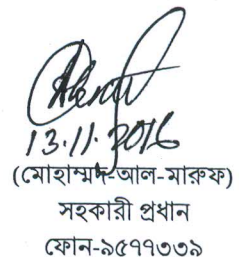 13.11.2016
(মোহাম্মদ-আল-মারুফ)
সহকারী প্রধান
ফোন-৯৫৭৭৩৩৯